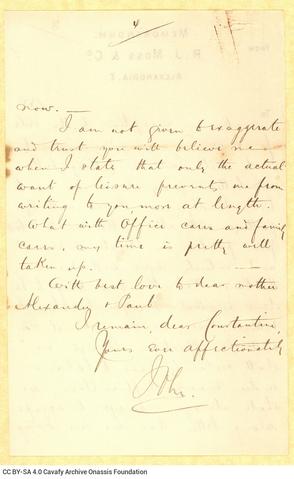 4
MEMORANDUM.
FROM
R. J. MOSS & Co.
ALEXANDRIA
now. —
I am not given to exaggerate
and trust you will believe me
when I state that only the actual
want of leisure prevents me from
writing to you more at length.
What with Office cares and family
cares, my time is pretty well
taken up. —
With best love to dear mother
Alexander & Paul
I remain, dear Constantine,
Yours ever affectionately
John.
CC BY-SA 4.0 Cavafy Archive Onassis Foundation